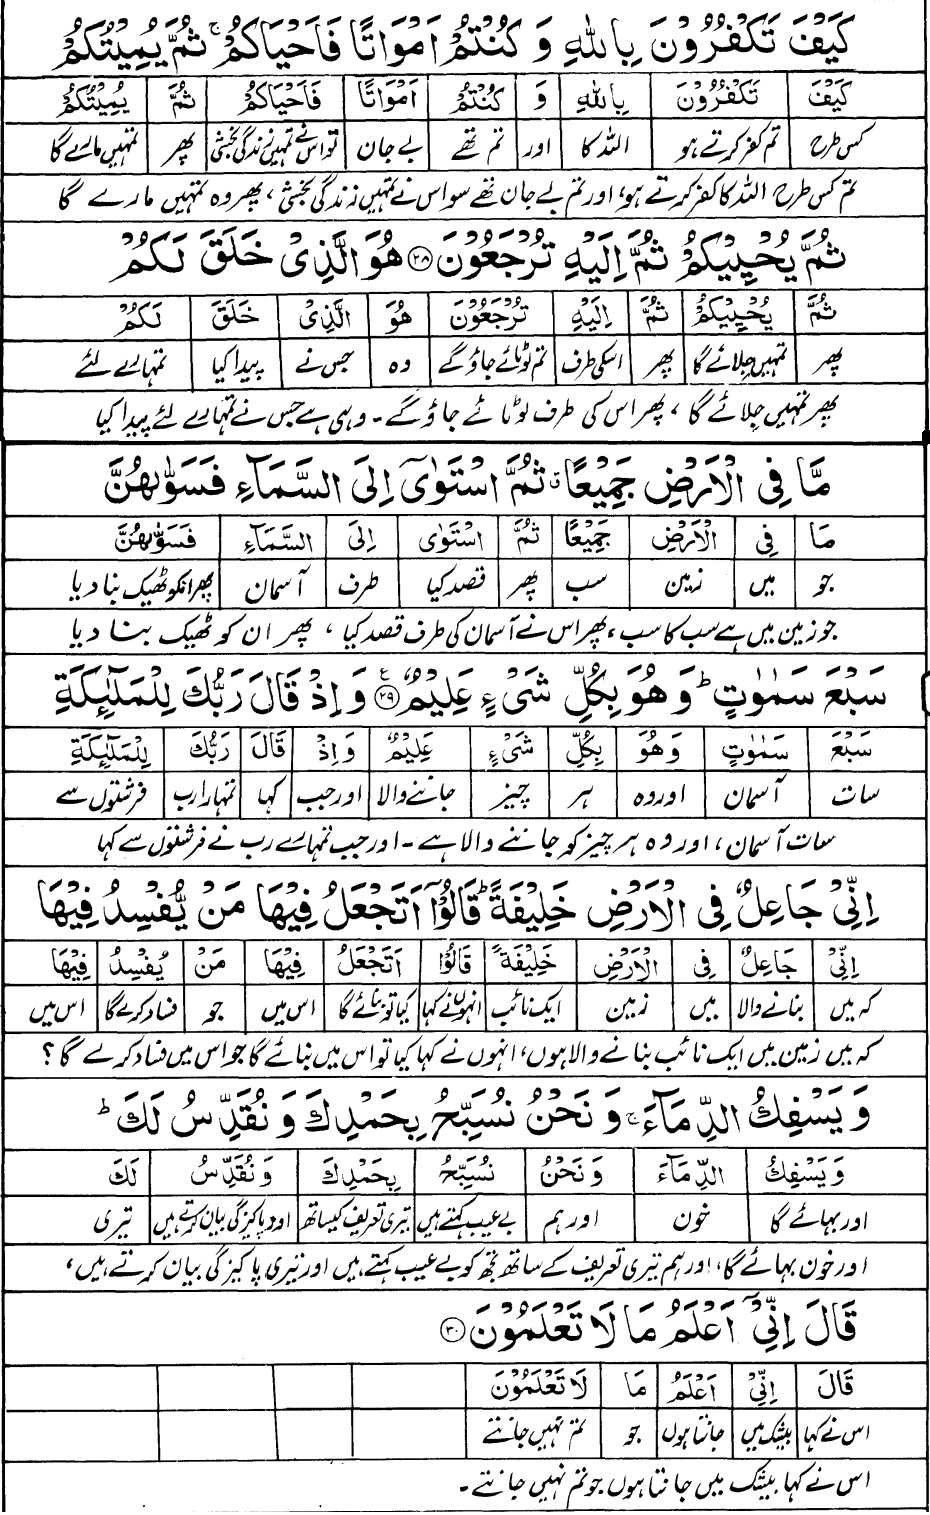 كَيْفَ تَكْفُرُوْنَ بِاللّٰهِ وَ كُنْتُمْ اَمْوَاتًا فَاَحْيَاكُمْ ۚ ثُمَّ يُمِيْتُكُمْ
كَيْفَ تَكْفُرُوْنَ بِاللّٰهِ وَ كُنْتُمْ اَمْوَاتًا فَاَحْيَاكُمْ ثُمَّ يُمِيْتُكُمْ
کس طرح تم کفر کرتے ہو اللہ کا اور تم تھے بے جان تو اس نے تمہیں زندگی بخشی پھر تمہیں مارے گا
تم کس طرح اللہ کا کفر کرتے ہو، اور تم بے جان تھے سو اس نے تمہیں زندگی بخشی، پھر وہ تمہیں مارے گا
ثُمَّ يُحْيِيْكُمْ ثُمَّ اِلَيْهِ تُرْجَعُوْنَ ۲۸ هُوَ الَّذِىْ خَلَقَ لَكُمْ
ثُمَّ يُحْيِيْكُمْ ثُمَّ اِلَيْهِ تُرْجَعُوْنَ هُوَ الَّذِىْ خَلَقَ لَكُمْ
پھر تمہیں جِلائے گا پھر اسکی طرف تم لوٹائے جاؤگے وہ جس نے پیدا کیا تمہارے لئے
پھر تمہیں جِلائے گا، پھر اس کی طرف لوٹائے جاؤ گے۔ وہی ہے جس نے تمہارے لئے پیدا کیا
مَّا فِى الْاَرْضِ جَمِيْعًا ثُمَّ اسْتَوٰٓى اِلَى السَّمَآءِ فَسَوّٰىهُنَّ
مَا فِى الْاَرْضِ جَمِيْعًا ثُمَّ اسْتَوٰى اِلَى السَّمَآءِ فَسَوّٰىهُنَّ
جو میں زمین سب پھر قصد کیا طرف آسمان پھر انکو ٹھیک بنا دیا
جو زمین میں ہے سب کا سب، پھر اس نے آسمان کی طرف قصد کیا، پھر ان کو ٹھیک بنا دیا
سَبْعَ سَمٰوٰتٍ ؕ وَهُوَ بِكُلِّ شَىْءٍ عَلِيْمٌ ۲۹ ع وَ اِذْ قَالَ رَبُّكَ لِلْمَلٰٓئِكَةِ
سَبْعَ سَمٰوٰتٍ وَهُوَ بِكُلِّ شَىْءٍ عَلِيْمٌ وَاِذْ قَالَ رَبُّكَ لِلْمَلٰٓئِكَةِ
سات آسمان اور وہ ہر چیز جاننے والا اور جب کہا تمہارا رب فرشتوں سے
سات آسمان، اور وہ ہر چیز کو جاننے والا ہے۔ اور جب تمہارے رب نے فرشتوں سے کہا
اِنِّىْ جَاعِلٌ فِى الْاَرْضِ خَلِيْفَةً ؕ قَالُوْٓا اَتَجْعَلُ فِيْهَا مَنْ يُّفْسِدُ فِيْهَا
اِنِّىْ جَاعِلٌ فِى الْاَرْضِ خَلِيْفَةً قَالُوْا اَتَجْعَلُ فِيْهَا مَنْ يُفْسِدُ فِيْهَا
کہ میں بنانے والا میں زمین ایک نائب انہوں نے کہا کیا تو بنائے گا اس میں جو فساد کرے گا اس میں
کہ میں زمین میں ایک نائب بنانے والا ہوں، انہوں نے کہا کیا تو اس میں بنائے گا جو اس میں فساد کرے گا؟
وَ يَسْفِكُ الدِّمَآءَ ۚ وَ نَحْنُ نُسَبِّحُ بِحَمْدِكَ وَ نُقَدِّسُ لَكَ ؕ
وَيَسْفِكُ الدِّمَآءَ وَنَحْنُ نُسَبِّحُ بِحَمْدِكَ وَنُقَدِّسُ لَكَ
اور بہائے گا خون اور ہم بے عیب کہتے ہیں تیری تعریف کیساتھ اور پاکیزگی بیان کرتے ہیں تیری
اور خون بہائے گا، اور ہم تیری تعریف کے ساتھ تجھ کو بے عیب کہتے ہیں اور تیری پاکیزگی بیان کرتے ہیں،
قَالَ اِنِّىْٓ اَعْلَمُ مَا لَا تَعْلَمُوْنَ ۳۰
قَالَ اِنِّىْ اَعْلَمُ مَا لَا تَعْلَمُوْنَ
اس نے کہا بیشک میں جانتا ہوں جو تم نہیں جانتے
اس نے کہا بیشک میں جانتا ہوں جو تم نہیں جانتے۔